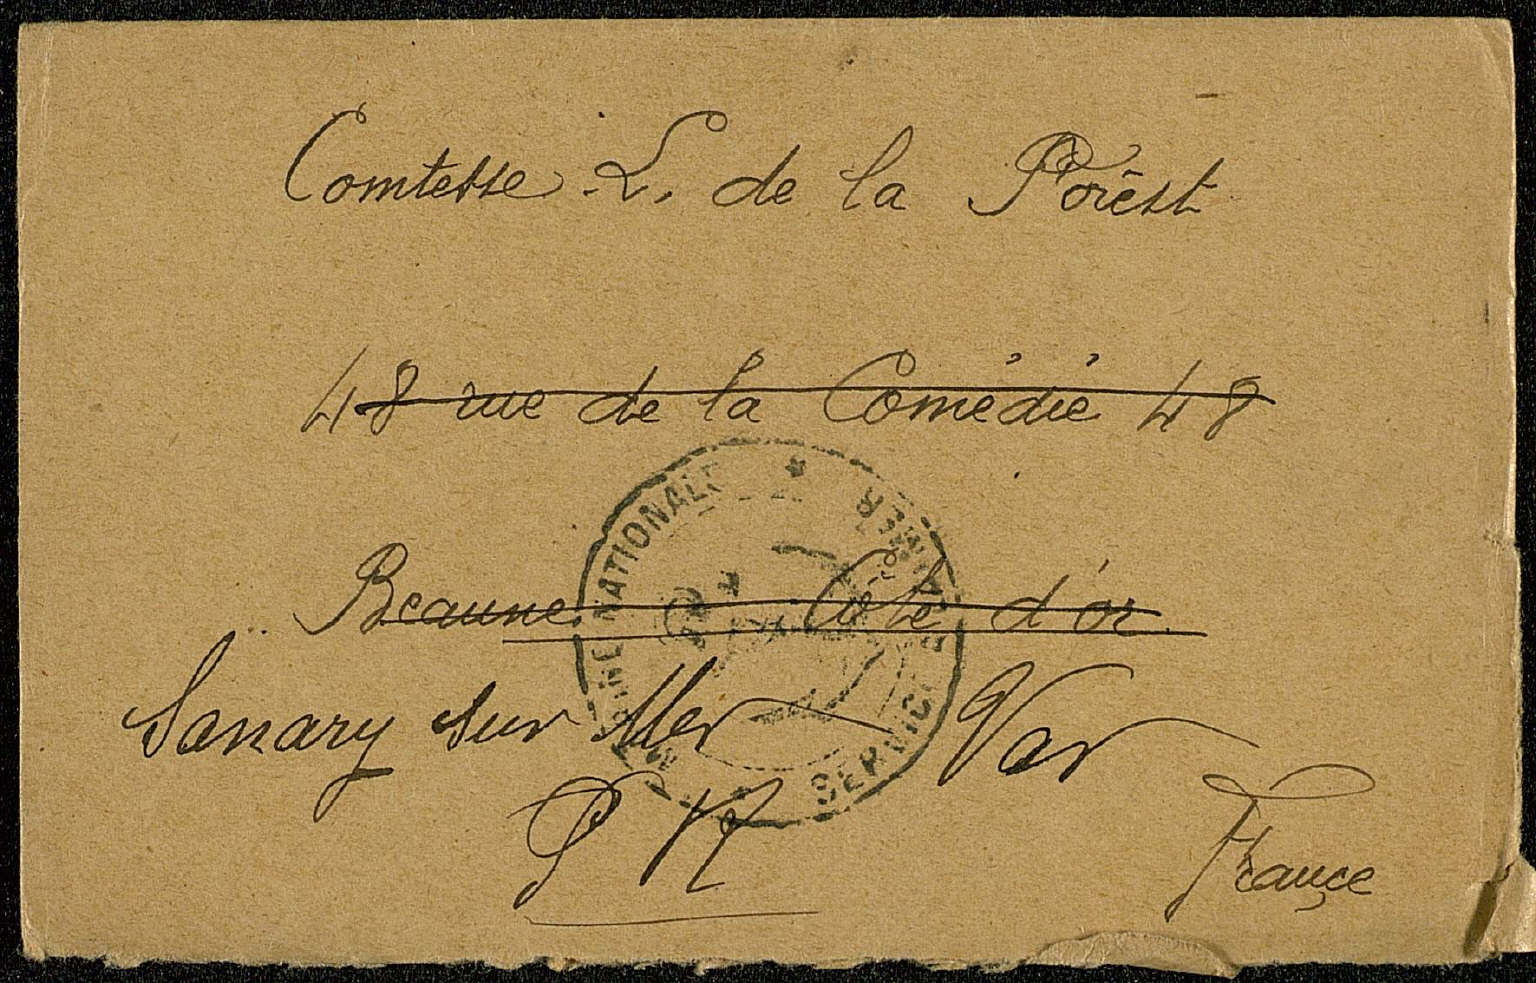 Comtesse L. de la Forêst
48 rue de la Comédie 48
Beaune Côte d'or
Sanary sur Mer Var
France
MARINE NATIONALE * SERVICE À LA MER